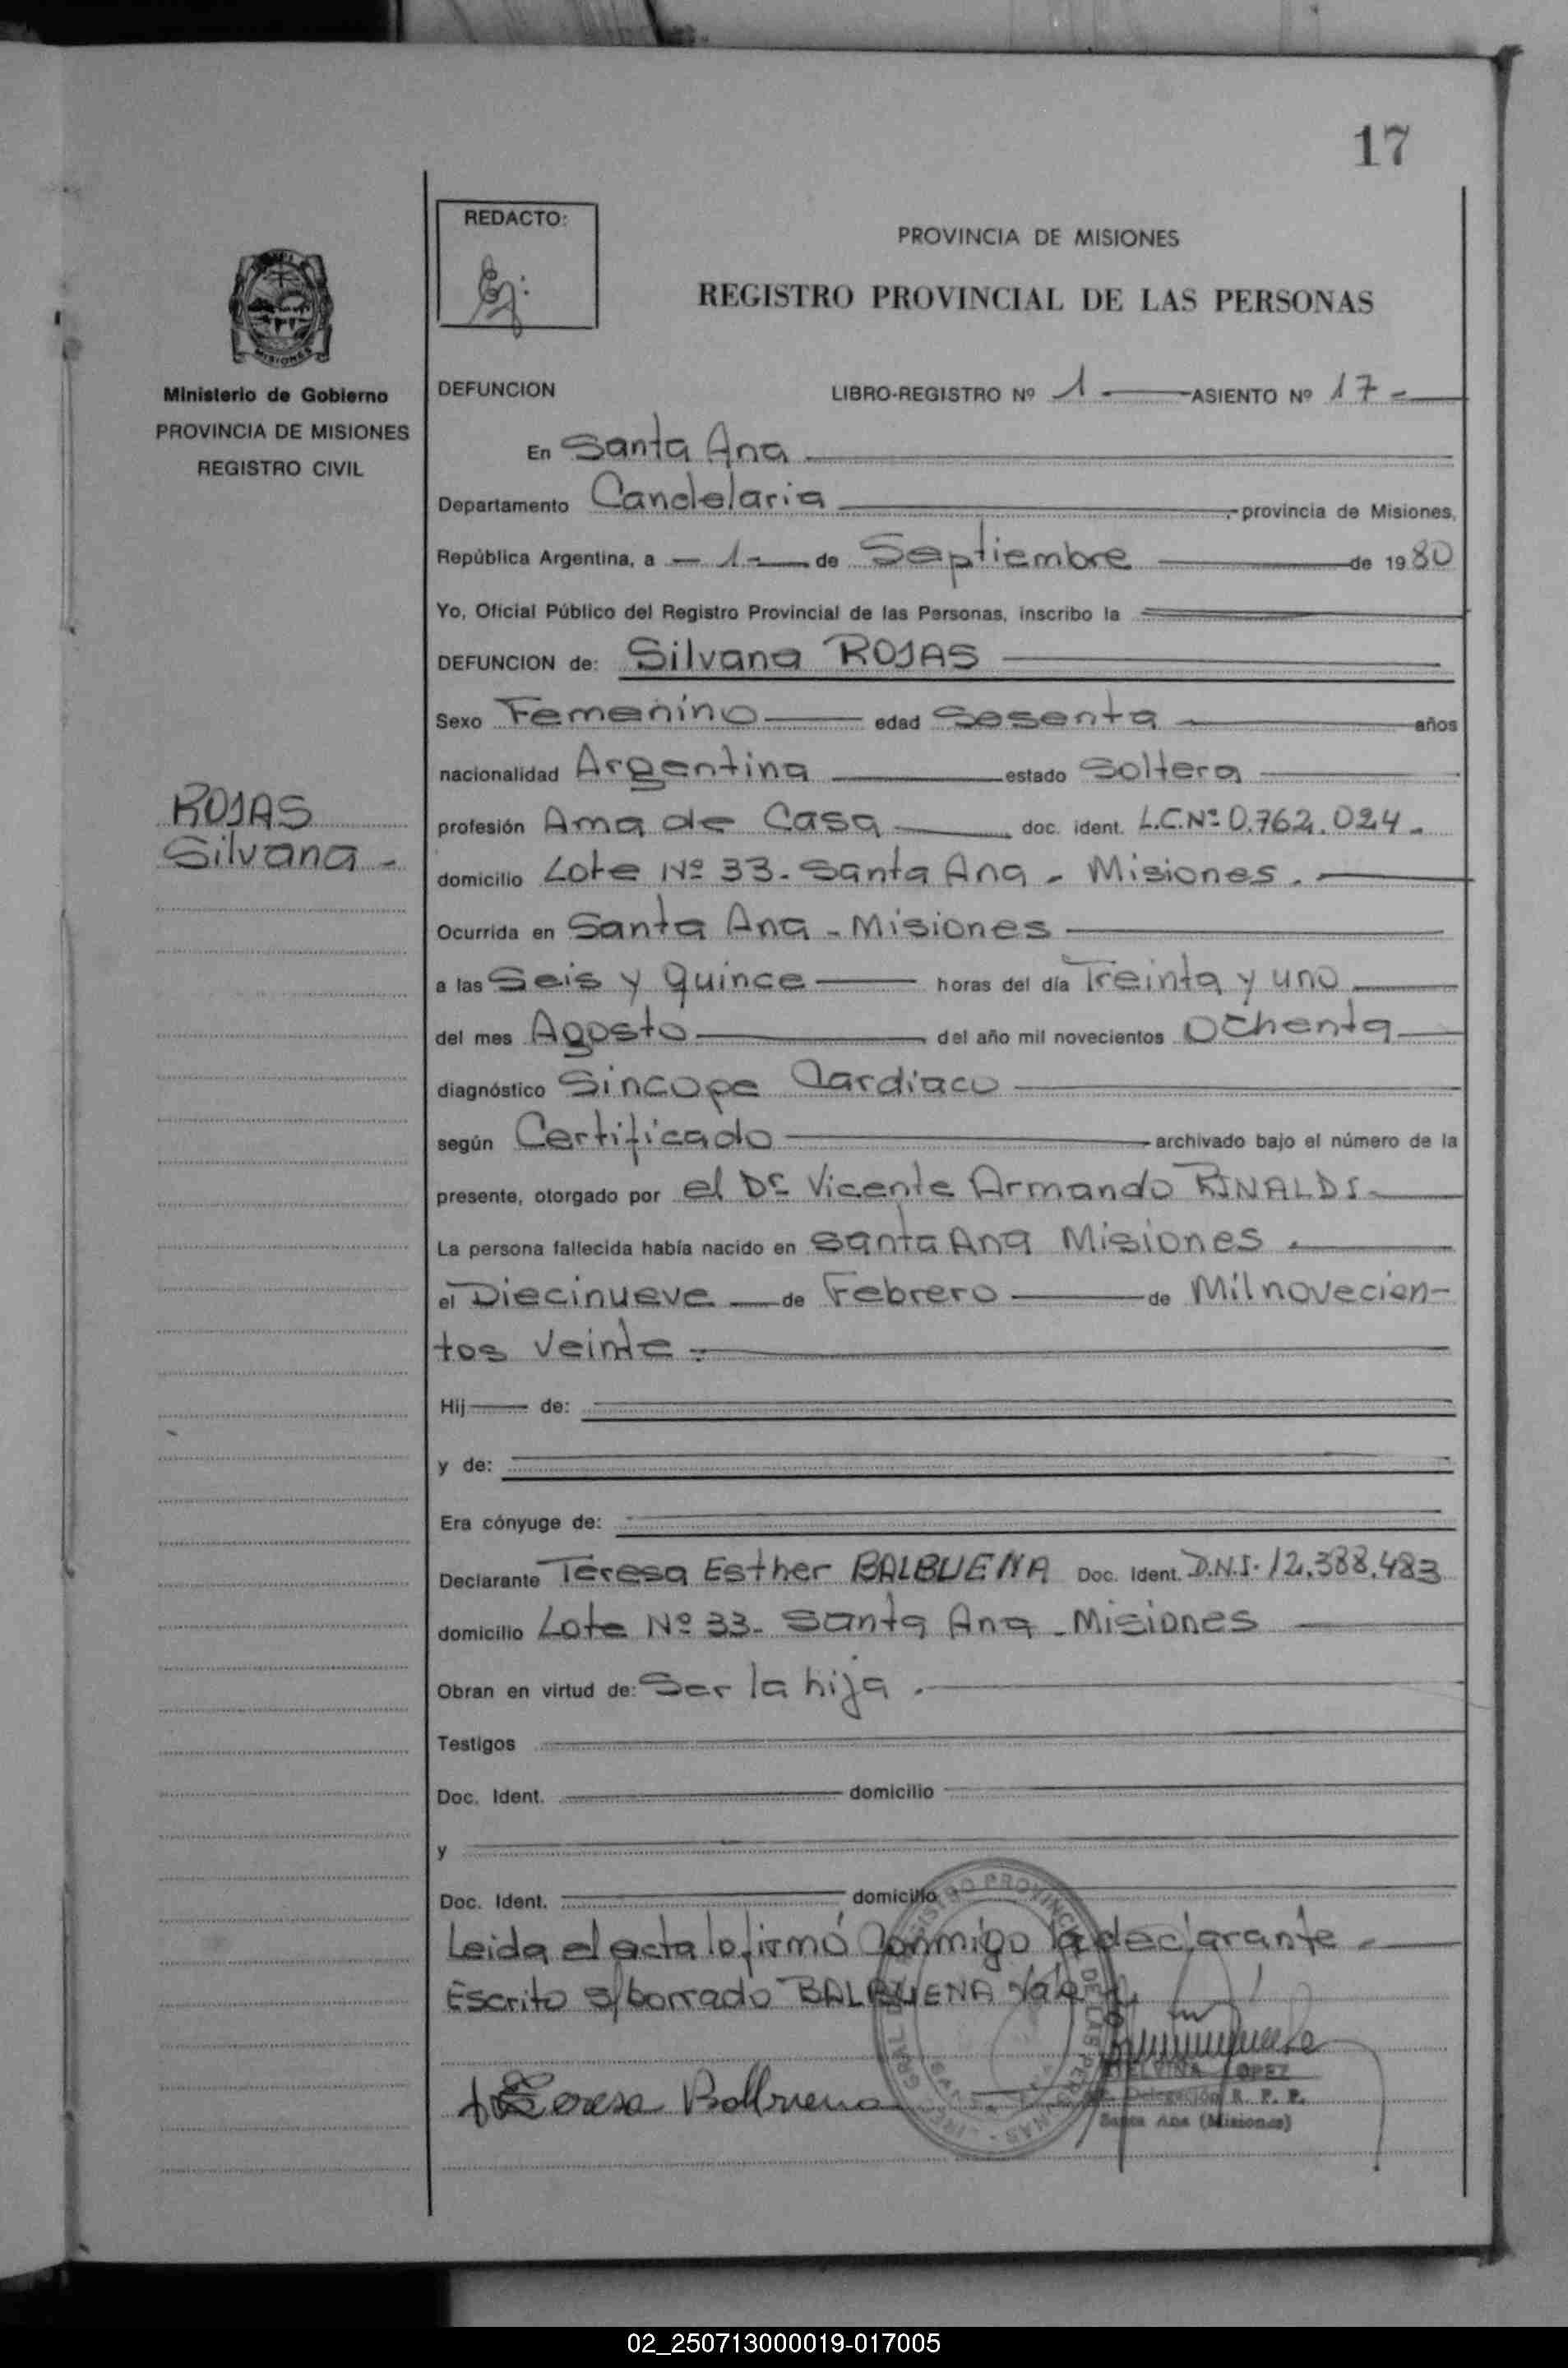 17
REDACTO:
PROVINCIA DE MISIONES
REGISTRO PROVINCIAL DE LAS PERSONAS
MISIONES
Ministerio de Gobierno
PROVINCIA DE MISIONES
REGISTRO CIVIL
DEFUNCION LIBRO-REGISTRO Nº 1 ASIENTO Nº 17-
En Santa Ana
Departamento Candelaria provincia de Misiones,
República Argentina, a - 1 - de Septiembre de 1980
Yo, Oficial Público del Registro Provincial de las Personas, inscribo la
DEFUNCION de: Silvana ROJAS
Sexo Femenino edad Sesenta años
nacionalidad Argentina estado Soltera
ROJAS
Silvana -
profesión Ama de Casa doc. ident. L.C.Nº 0.762.024.
domicilio Lote Nº 33. Santa Ana - Misiones.
Ocurrida en Santa Ana - Misiones
a las Seis y quince horas del día Treinta y uno
del mes Agosto del año mil novecientos Ochenta
diagnóstico Sincope Cardiaco
según Certificado archivado bajo el número de la
presente, otorgado por el Dr Vicente Armando RINALDI.
La persona fallecida había nacido en Santa Ana Misiones.
el Diecinueve de Febrero de Milnovecien-
tos veinte.
Hij de:
y de:
Era cónyuge de:
Declarante Teresa Esther BALBUENA Doc. Ident. D.N.I. 12.388.483
domicilio Lote Nº 33. Santa Ana - Misiones
Obran en virtud de: Ser la hija.
Testigos
Doc. Ident. domicilio
y
Doc. Ident. domicilio
Leida el acta lo firmó Conmigo la declarante.
Escrito s/borrado BALBUENA Vale
Teresa Balbuena
LOPEZ
Delegación R. P. P.
Santa Ana (Misiones)
02_250713000019-017005